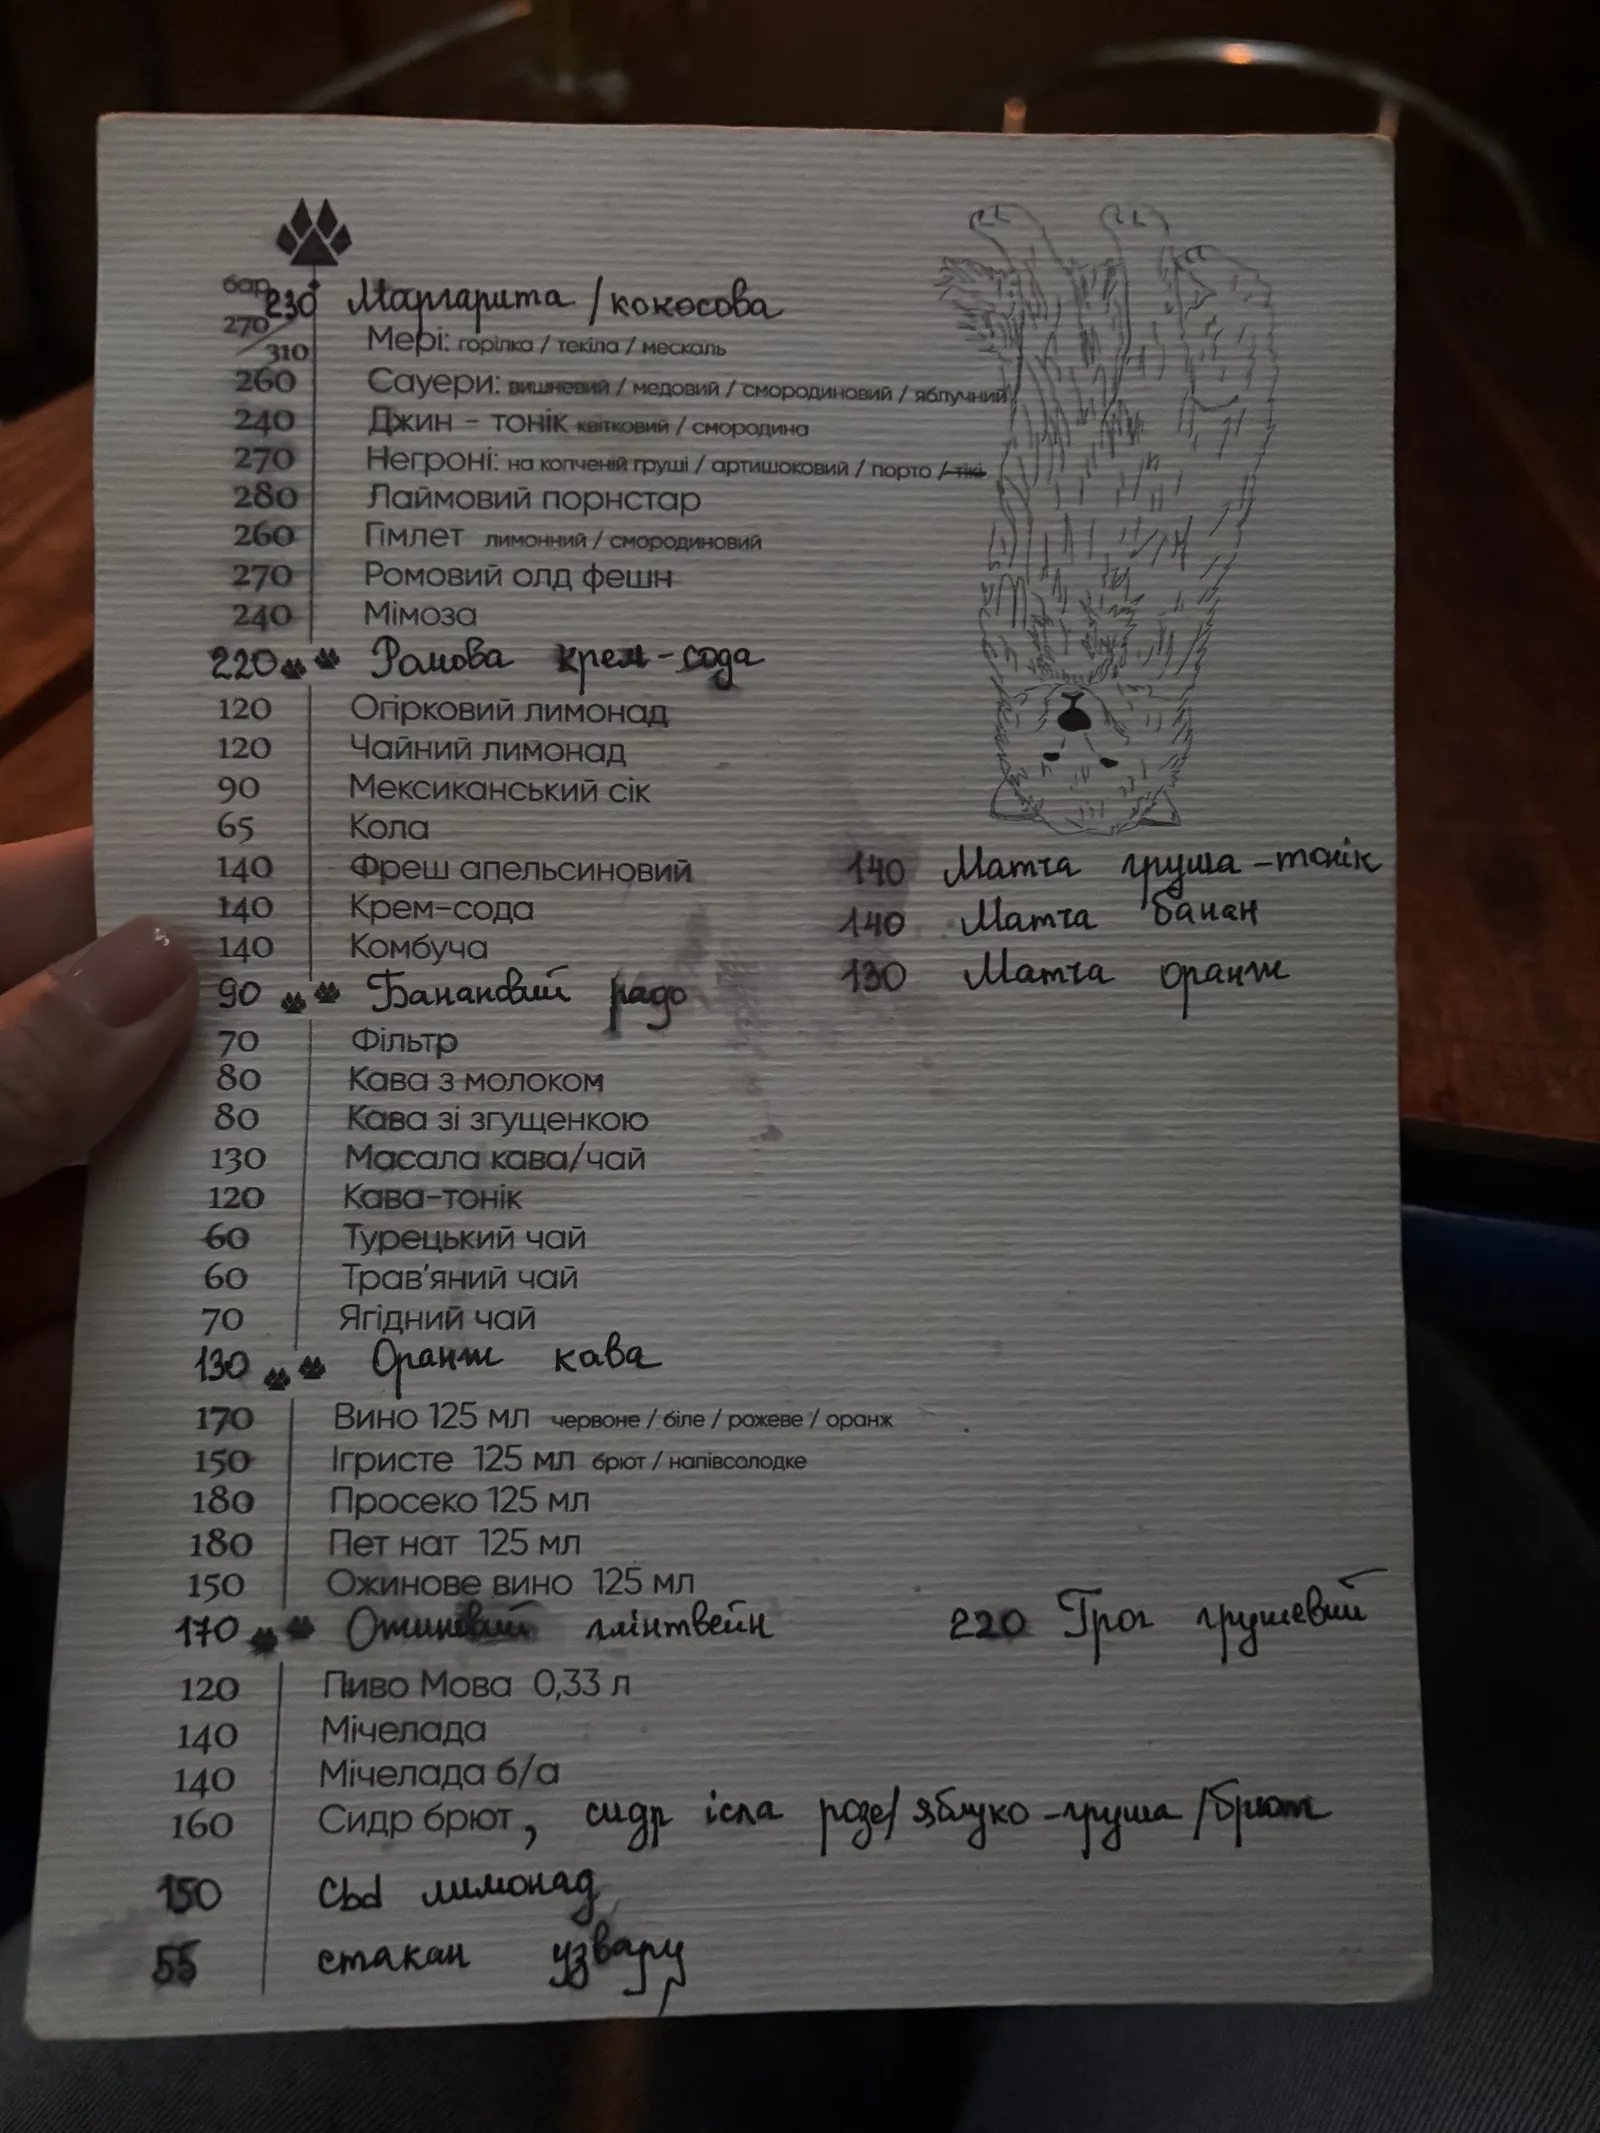 бар
230 Маргарита / кокосова
270/310 Мері: горілка / текіла / мескаль
260 Сауери: вишневий / медовий / смородиновий / яблучний
240 Джин – тонік квітковий / смородина
270 Негроні: на копченій груші / артишоковий / порто / тікі
280 Лаймовий порнстар
260 Гімлет лимонний / смородиновий
270 Ромовий олд фешн
240 Мімоза
220 Ромова крем-сода
120 Огірковий лимонад
120 Чайний лимонад
90 Мексиканський сік
65 Кола
140 Фреш апельсиновий
140 Матча груша-тонік
140 Крем-сода
140 Матча банан
140 Комбуча
130 Матча оранж
90 Банановий радо
70 Фільтр
80 Кава з молоком
80 Кава зі згущенкою
130 Масала кава/чай
120 Кава-тонік
60 Турецький чай
60 Трав'яний чай
70 Ягідний чай
130 Оранж кава
170 Вино 125 мл червоне / біле / рожеве / оранж
150 Ігристе 125 мл брют / напівсолодке
180 Просеко 125 мл
180 Пет нат 125 мл
150 Ожинове вино 125 мл
170 Ожиновий глінтвейн
220 Грог грушевий
120 Пиво Мова 0,33 л
140 Мічелада
140 Мічелада б/а
160 Сидр брют, сидр ісла розе/ яблуко-груша /брют
150 Cbd лимонад
55 стакан узвару